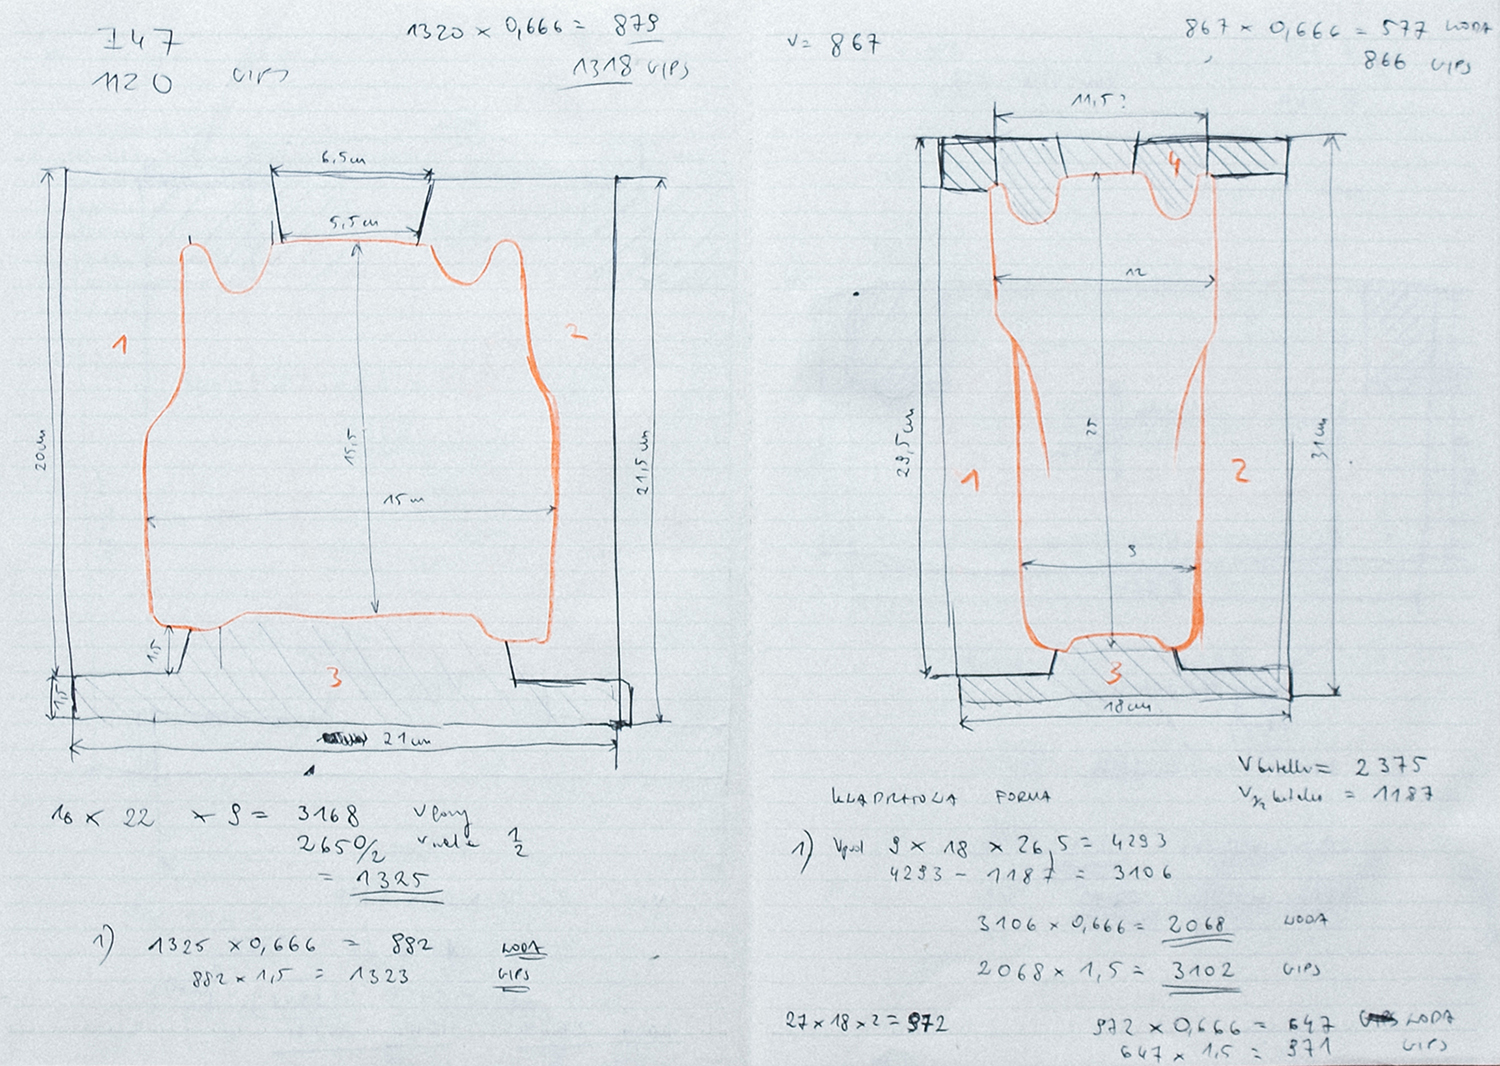 147
1120 GIPS
1320 × 0,666 = 879
1318 GIPS
6,5cm
5,5cm
1
2
20cm
15,5
15cm
21,5cm
1,5
1,5
3
21cm
16 × 22 × 9 = 3168 V formy
2650/2 1/2
= 1325
1) 1325 × 0,666 = 882 WODA
882 × 1,5 = 1323 GIPS
V= 867
867 × 0,666 = 577 WODA
866 GIPS
11,5?
4
12
29,5cm
25
31cm
1
2
9
3
18cm
V butelki = 2375
V 1/2 butelki = 1187
KWADRATOWA FORMA
1) 9 × 18 × 26,5 = 4293
4293 - 1187 = 3106
3106 × 0,666 = 2068 WODA
2068 × 1,5 = 3102 GIPS
27 × 18 × 2 = 972
972 × 0,666 = 647 WODA
647 × 1,5 = 971 GIPS